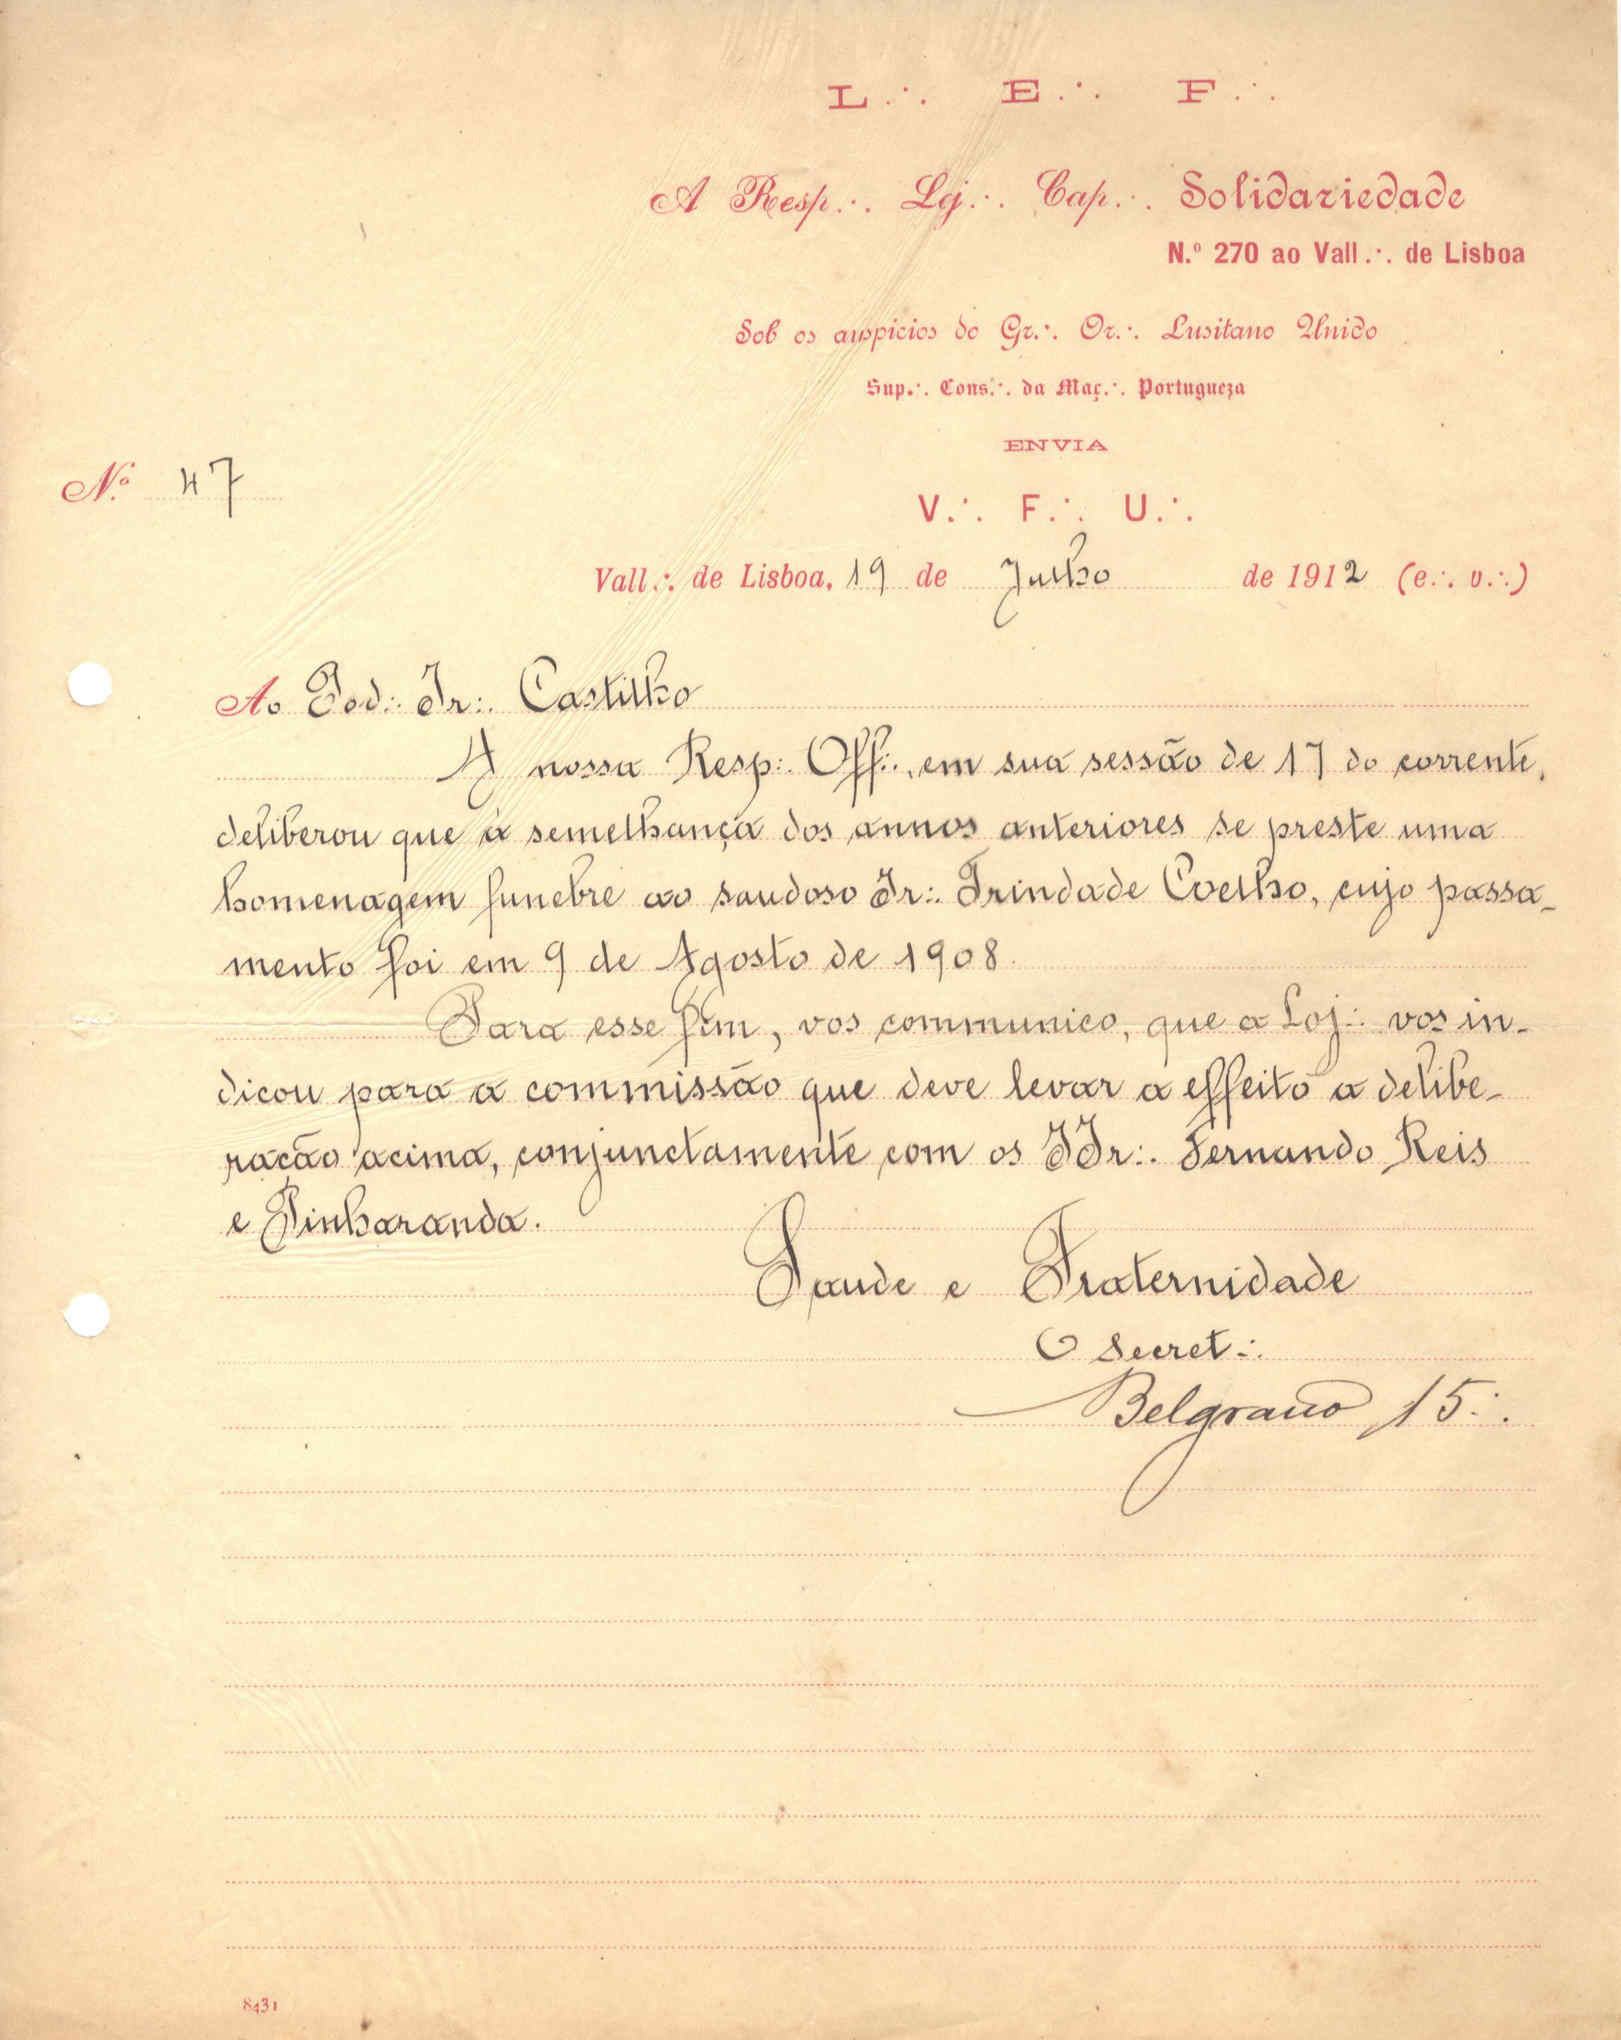 L.∴ E.∴ F.∴
A Resp.∴ Lj.∴ Cap.∴ Solidariedade
N.º 270 ao Vall.∴ de Lisboa
Sob os auspicios do Gr.∴ Or.∴ Lusitano Unido
Sup.∴ Cons.∴ da Maç.∴ Portugueza
ENVIA
N.º 47
V.∴ F.∴ U.∴
Vall.∴ de Lisboa, 19 de Julho de 1912 (e.∴ v.∴)
Ao Pod∴ Ir∴ Castilho
A nossa Resp∴ Off∴, em sua sessão de 17 do corrente,
deliberou que à semelhança dos annos anteriores se preste uma
homenagem funebre ao saudoso Ir∴ Trindade Coelho, cujo passa-
mento foi em 9 de Agosto de 1908.
Para esse fim, vos communico, que a Loj∴ vos in-
dicou para a commissão que deve levar a effeito a delibe-
ração acima, conjunctamente com os IIr∴ Fernando Reis
e Pinharanda.
Saude e Fraternidade
O Secret∴
Belgrano 15∴
8431